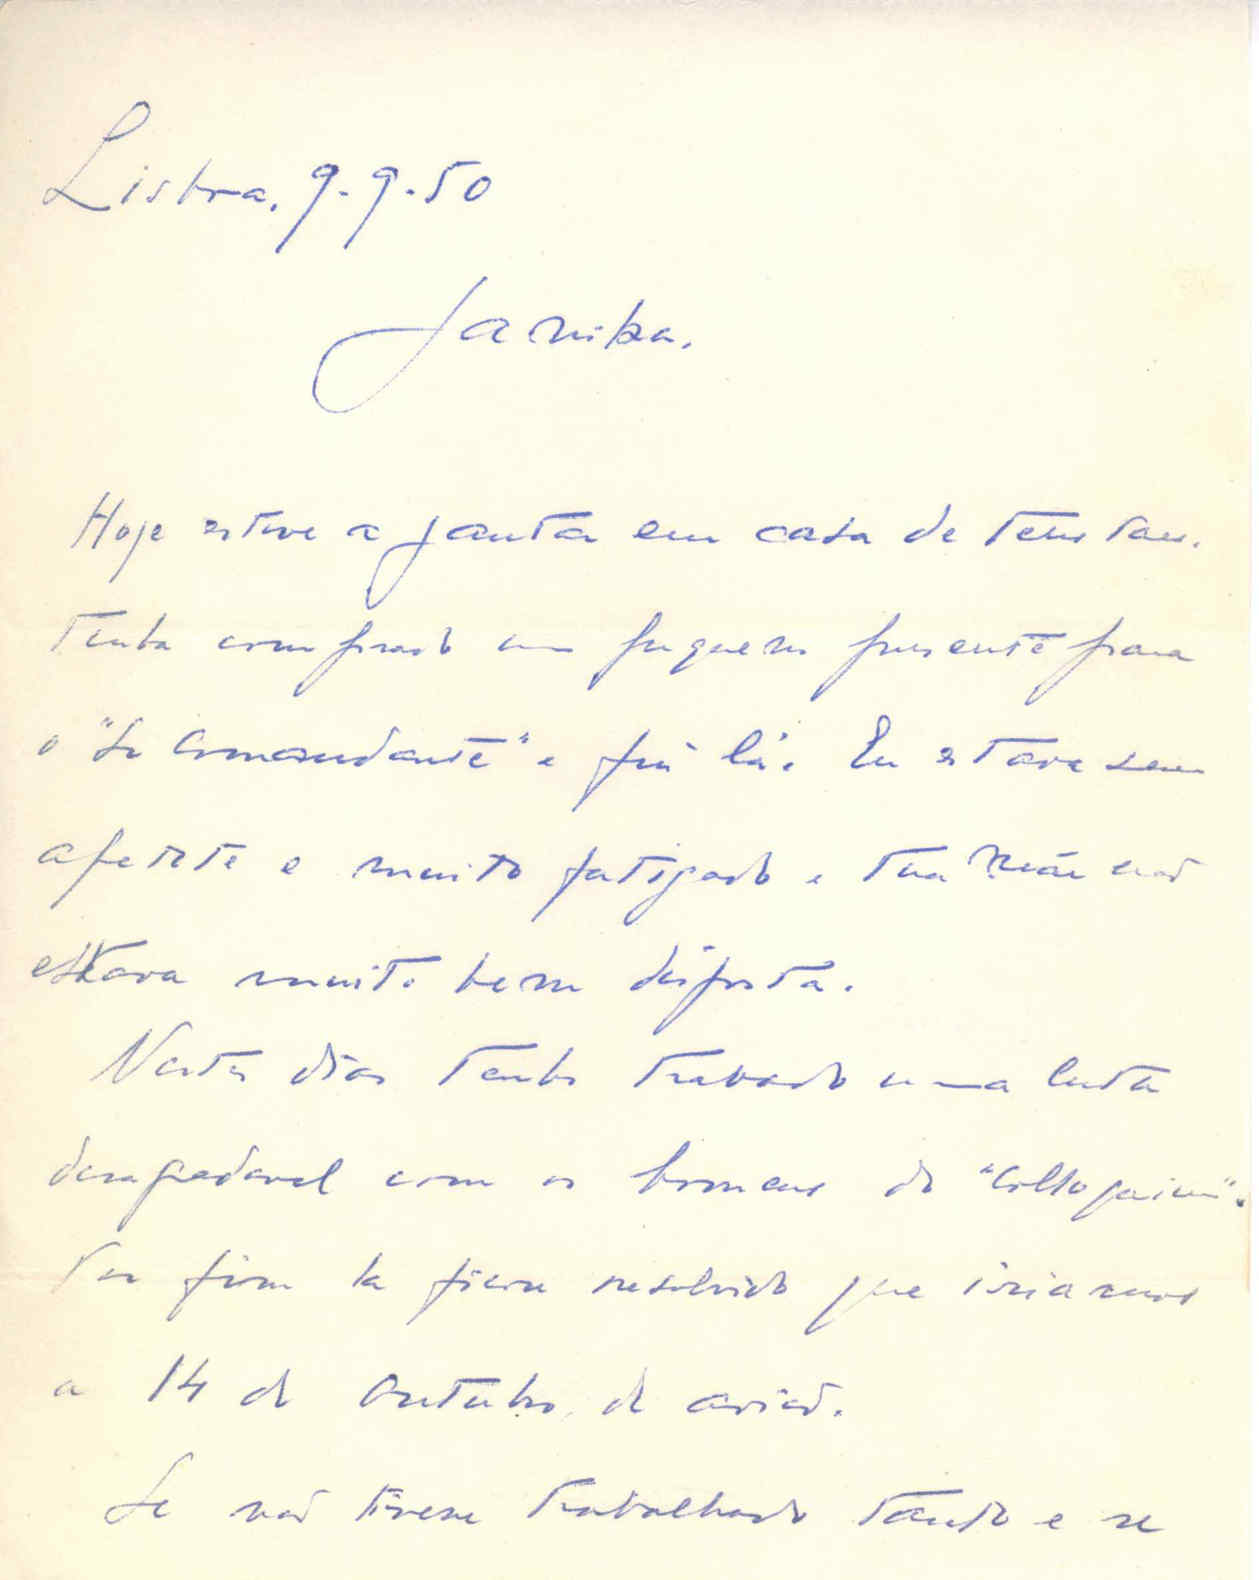 Lisboa, 9-9-50
Janika.
Hoje estive a jantar em casa de teus pais.
Tinha comprado um pequeno presente para
o "Se Comandante" e fui lá. Eu estava sem
apetite e muito fatigado e tua Mãe não
estava muito bem disposta.
Nestes dias tenho travado uma luta
desagradavel com os homens do "Colloquium".
Por fim la ficou resolvido que iriamos
a 14 de Outubro, de avião.
Se não tivesse trabalhado tanto e se